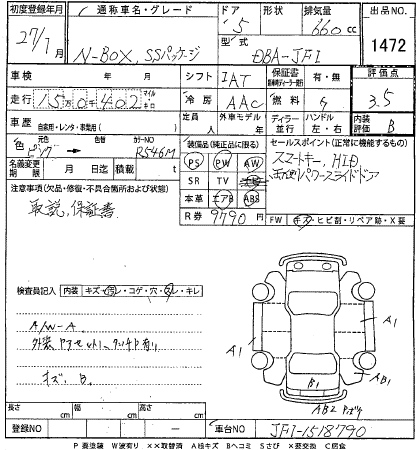 初度登録年月 通称車名・グレード ドア 形状 排気量 出品NO.
27/7月 N-BOX, SSパッケージ 5 660cc 1472
型式 DBA-JF1
車検 年 月 シフト IAT 保証書 有・無 評価点
走行 15万0千402 マイル キロ 冷房 AAC 燃料 3.5
車歴 自家用・レンタ・事業用( ) 定員 人 外車モデル 年 ディーラー 並行 ハンドル 左・右 内装 B
色 ピンク 色替 カラーNO R546M 装備品(純正品に限る) セールスポイント(正常に機能するもの)
PS PW AW スマートキー, HID
名義変更期限 月 日迄 積載量 t SR TV パワースライドドア
注意事項(欠品・修復・不具合箇所および状態) 本革 エアB ABS
取説, 保証書 R券 9790円 FW キズ・ヒビ割・リペア跡・X要
検査員記入 内装 キズ・汚レ・コゲ・穴・スレ・キレ
A/W-A
キズ. B.
A1 A1 B1 AB1
AB2
長さ cm 幅 cm 高さ cm
登録NO 車台NO JF1-1518790
P要塗装 W波有り ××取替済 A線キズ Bヘコミ Sさび ×要交換 C腐食